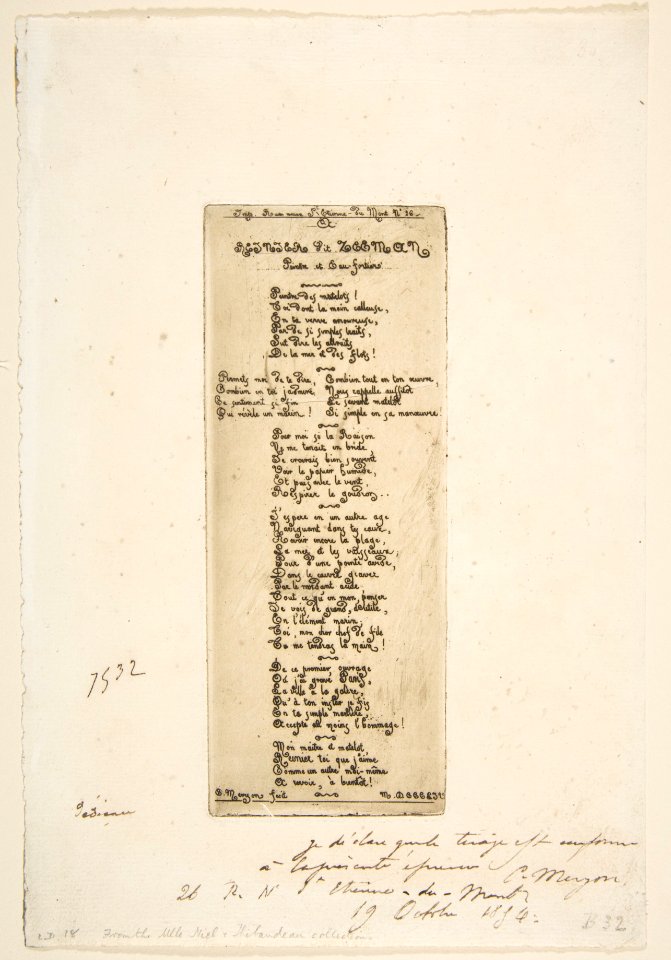 Imp. Rue neuve St Etienne-du Mont No 26.
A
REINIER dit ZEEMAN
Peintre et Eau fortier.
Peintre des matelots !
Toi dont la main calleuse,
En ta verve amoureuse,
Par de si simples traits,
Sut dire les attraits
De la mer et des flots !
Permets moi de te dire,
Combien en toi j'admire,
Ce sentiment si fin
Qui révèle un marin !
Combien tout en ton œuvre,
Nous rappelle aussitot
Le savant matelot
Si simple en sa manœuvre !
Pour moi si la Raison
Ne me tenait en bride,
Je croirais bien souvent
Voir le papier humide,
Et puis avec le vent,
Respirer le goudron..
J'espère en un autre age
Naviguant dans tes eaux,
Revoir encore la plage,
La mer et les vaisseaux;
Pour d'une pointe avide,
Dans le cuivre graver
Par le mordant acide
Tout ce qu'en mon penser
Je vois de grand,
En l'élément marin;
Toi, mon cher chef de file
Tu me tendras la main !
De ce premier ouvrage
Où j'ai gravé Paris,
La ville à la galère,
Qu'à ton instar je fis
En ta simple manière,
Accepte au moins l'hommage !
Mon maître et matelot
REINIER toi que j'aime
Comme un autre moi-même
A revoir, à bientot !
C. Meryon fecit
M. DCCCLIV
7532
je déclare que le tirage est conforme
à la présente épreuve C. Meryon.
26 R. N. St Etienne-du-Mont
19 Octobre 1854.
B 32
L.D. 18 From the Mlle Niel & Thibaudeau collection.